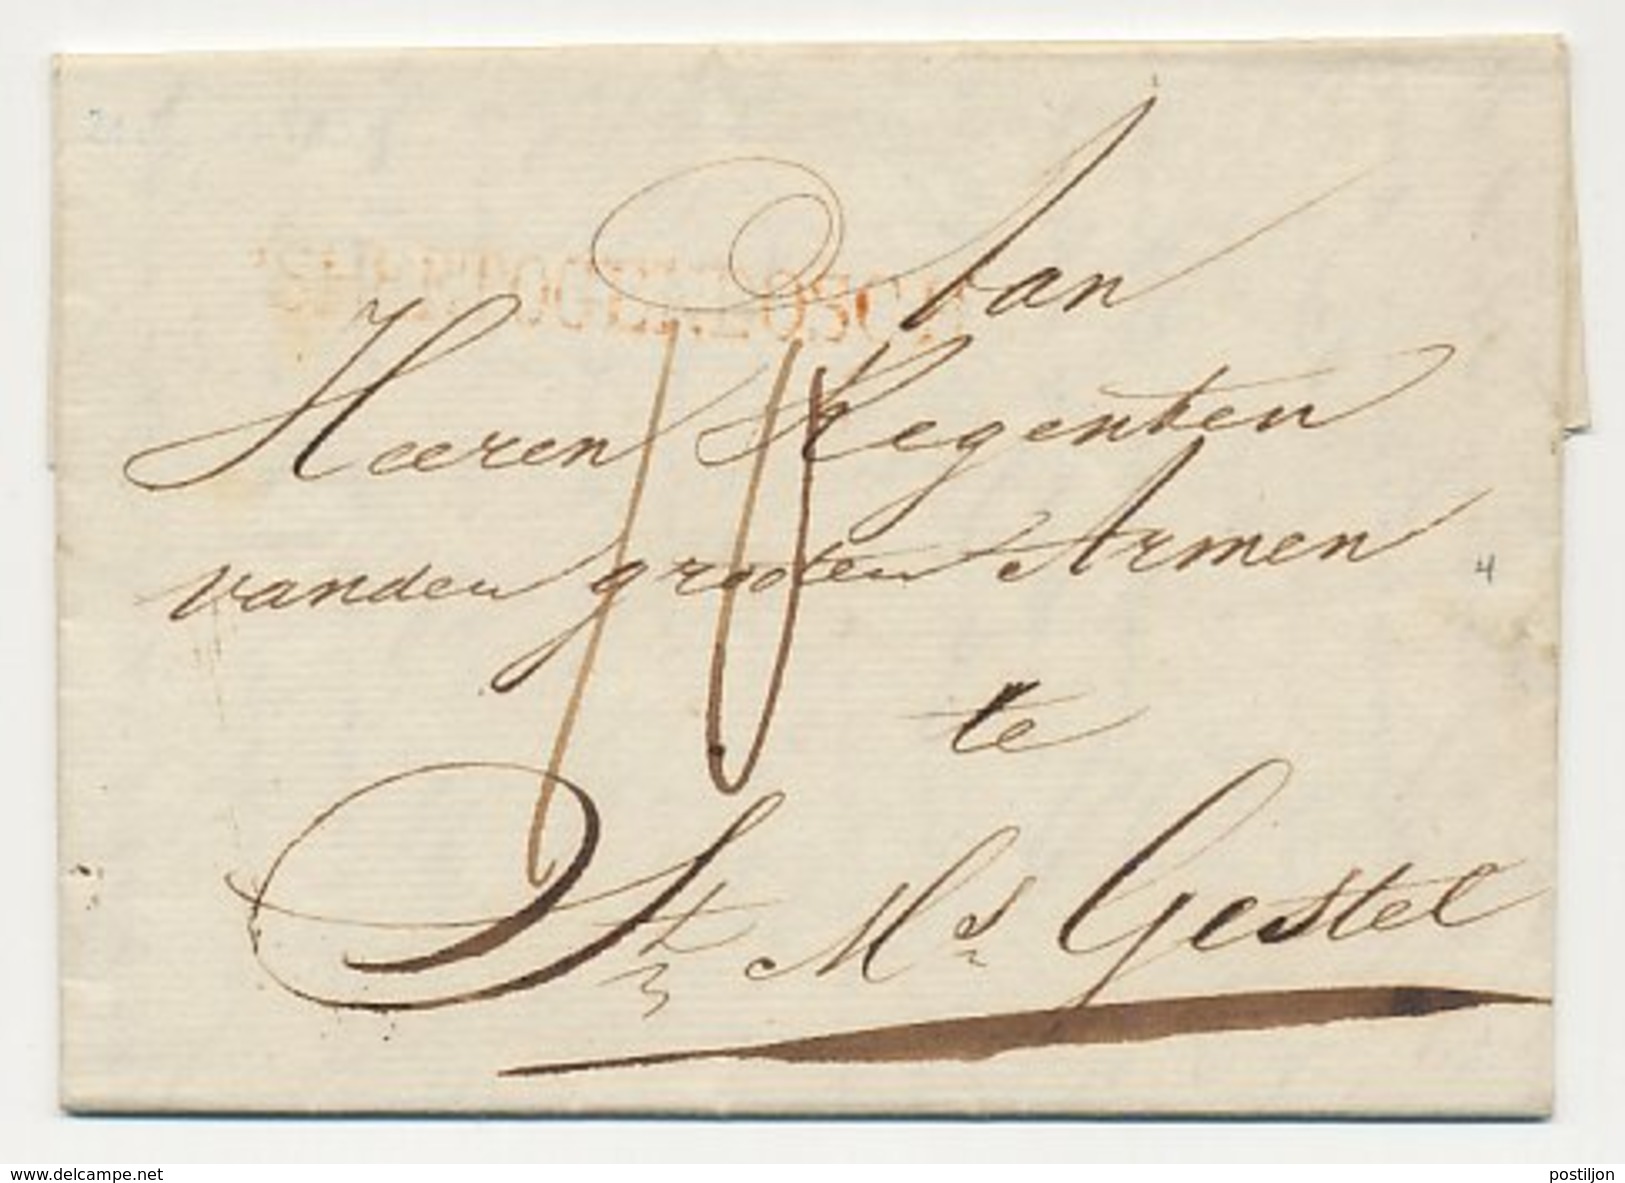 Aan
Heeren Regenten
vanden grooten Armen
te
St Mls Gestel
10
4
www.delcampe.net
postiljon